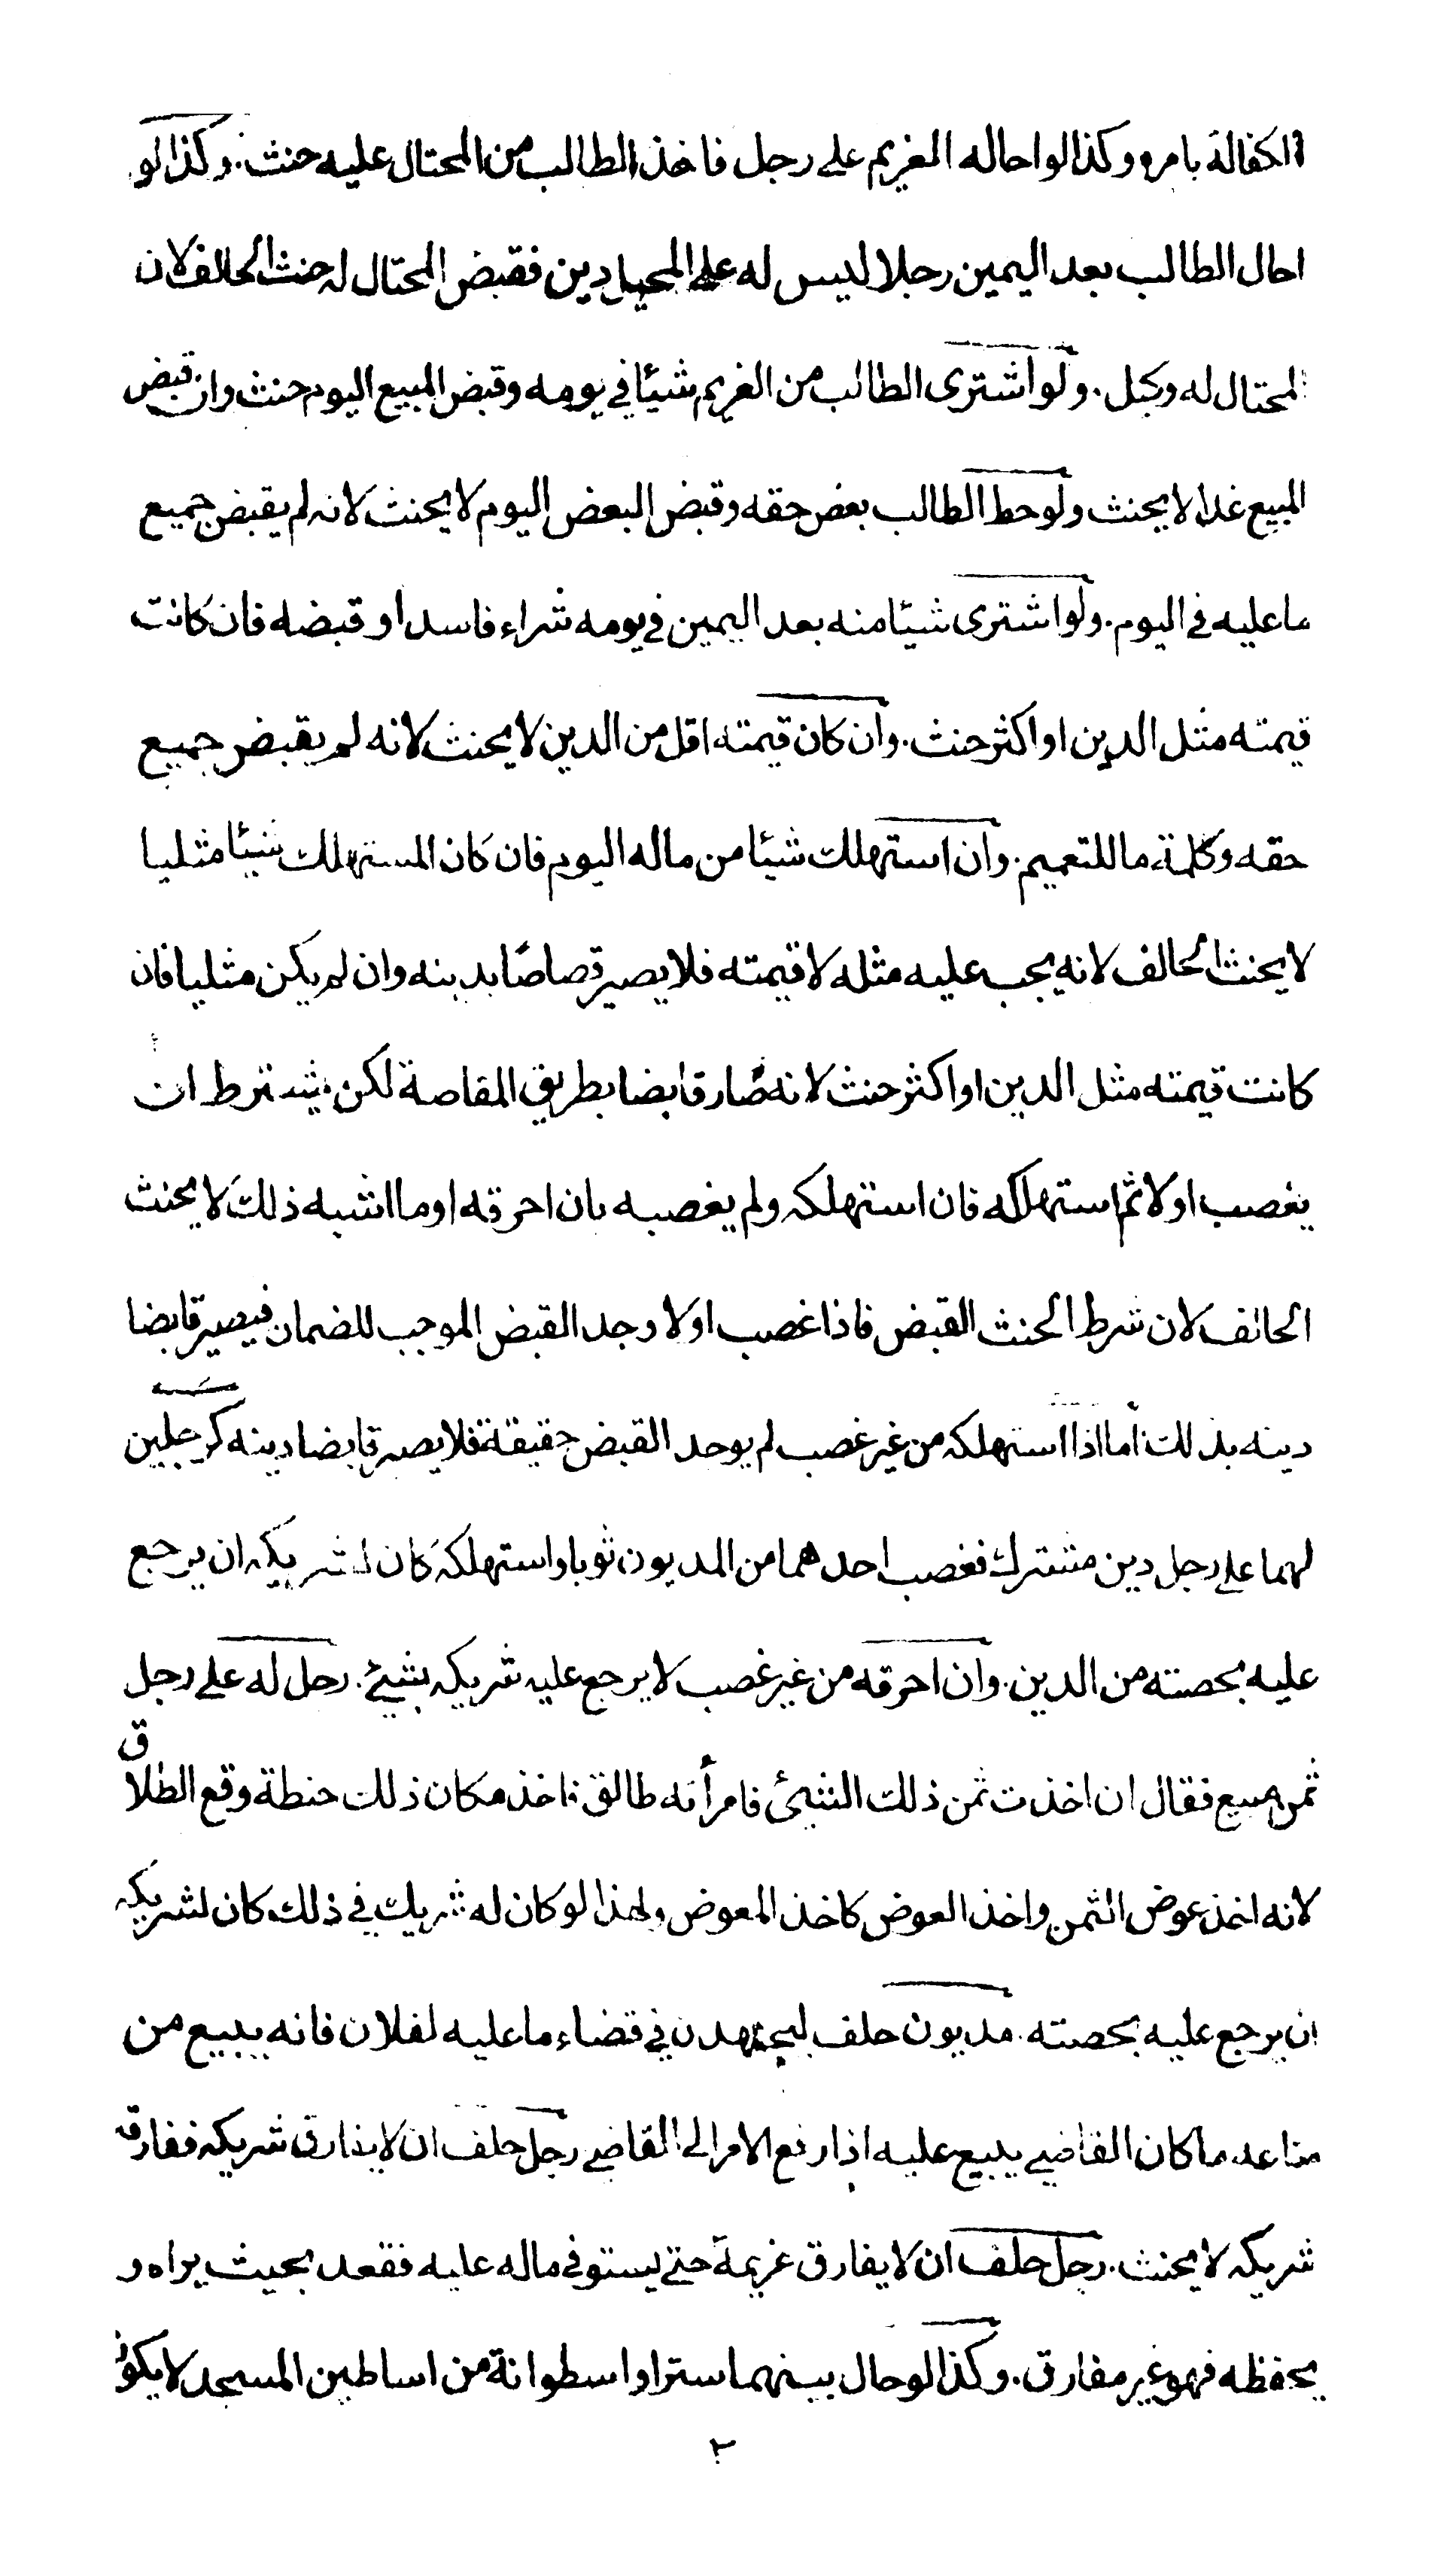 الكفالة بامره وكذا لو احاله الغريم على رجل فاخذ الطالب من المحتال عليه حنث . وكذا لو
احال الطالب بعد اليمين رجلا ليس له على المحيل دين فقبض المحتال له حنث الحالف لان
المحتال له وكيل . ولو اشترى الطالب من الغريم شيئا في يومه وقبض المبيع اليوم حنث وان قبض
المبيع غدا لا يحنث ولو حط الطالب بعض حقه وقبض البعض اليوم لا يحنث لانه لم يقبض جميع
ما عليه في اليوم . ولو اشترى شيئا منه بعد اليمين في يومه شراء فاسدا و قبضه فان كانت
قيمته مثل الدين او اكثر حنث . وان كان قيمته اقل من الدين لا يحنث لانه لم يقبض جميع
حقه وكلمة ما للتعميم . وان استهلك شيئا من ماله اليوم فان كان المستهلك شيئا مثليا
لا يحنث الحالف لانه يجب عليه مثله لا قيمته فلا يصير قصاصا بدينه وان لم يكن مثليا فان
كانت قيمته مثل الدين او اكثر حنث لانه صار قابضا بطريق المقاصة لكن يشترط ان
يغصب اولا ثم استهلكه فان استهلكه ولم يغصبه بان احرقه او ما اشبه ذلك لا يحنث
الحالف لان شرط الحنث القبض فاذا غصب اولا وجد القبض الموجب للضمان فيصير قابضا
دينه بذلك اما اذا استهلكه من غير غصب لم يوجد القبض حقيقة فلا يصير قابضا دينه كرجلين
لهما على رجل دين مشترك فغصب احدهما من المديون ثوبا واستهلكه كان لشريكه ان يرجع
عليه بحصته من الدين . وان احرقه من غير غصب لا يرجع عليه شريكه بشيئ . رجل له على رجل
ثمن مبيع فقال ان اخذت ثمن ذلك الشيئ فامرأته طالق فاخذ مكان ذلك حنطة وقع الطلاق
لانه اخذ عوض الثمن واخذ العوض كاخذ المعوض ولهذا لو كان له شريك في ذلك كان لشريكه
ان يرجع عليه بحصته . مديون حلف ليجتهدن في قضاء ما عليه لفلان فانه يبيع من
متاعه ما كان القاضي يبيع عليه اذا رفع الامر الى القاضي رجل حلف ان لا يفارق شريكه ففارقه
شريكه لا يحنث . رجل حلف ان لا يفارق غريمه حتى يستوفي ماله عليه فقعد بحيث يراه و
يحفظه فهو غير مفارق . وكذا لو حال بينهما سترا و اسطوانة من اساطين المسجد لا يكون
٢